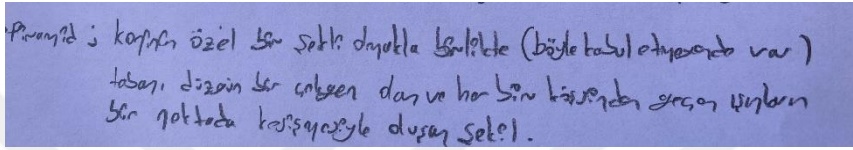 Piramid ; koninin özel bir şekli olmakla birlikte (böyle kabul etmeyende var)
tabanı düzgün bir çokgen olan ve her bir köşesinden geçen ışınların
bir noktada kesişmesiyle oluşan şekil.